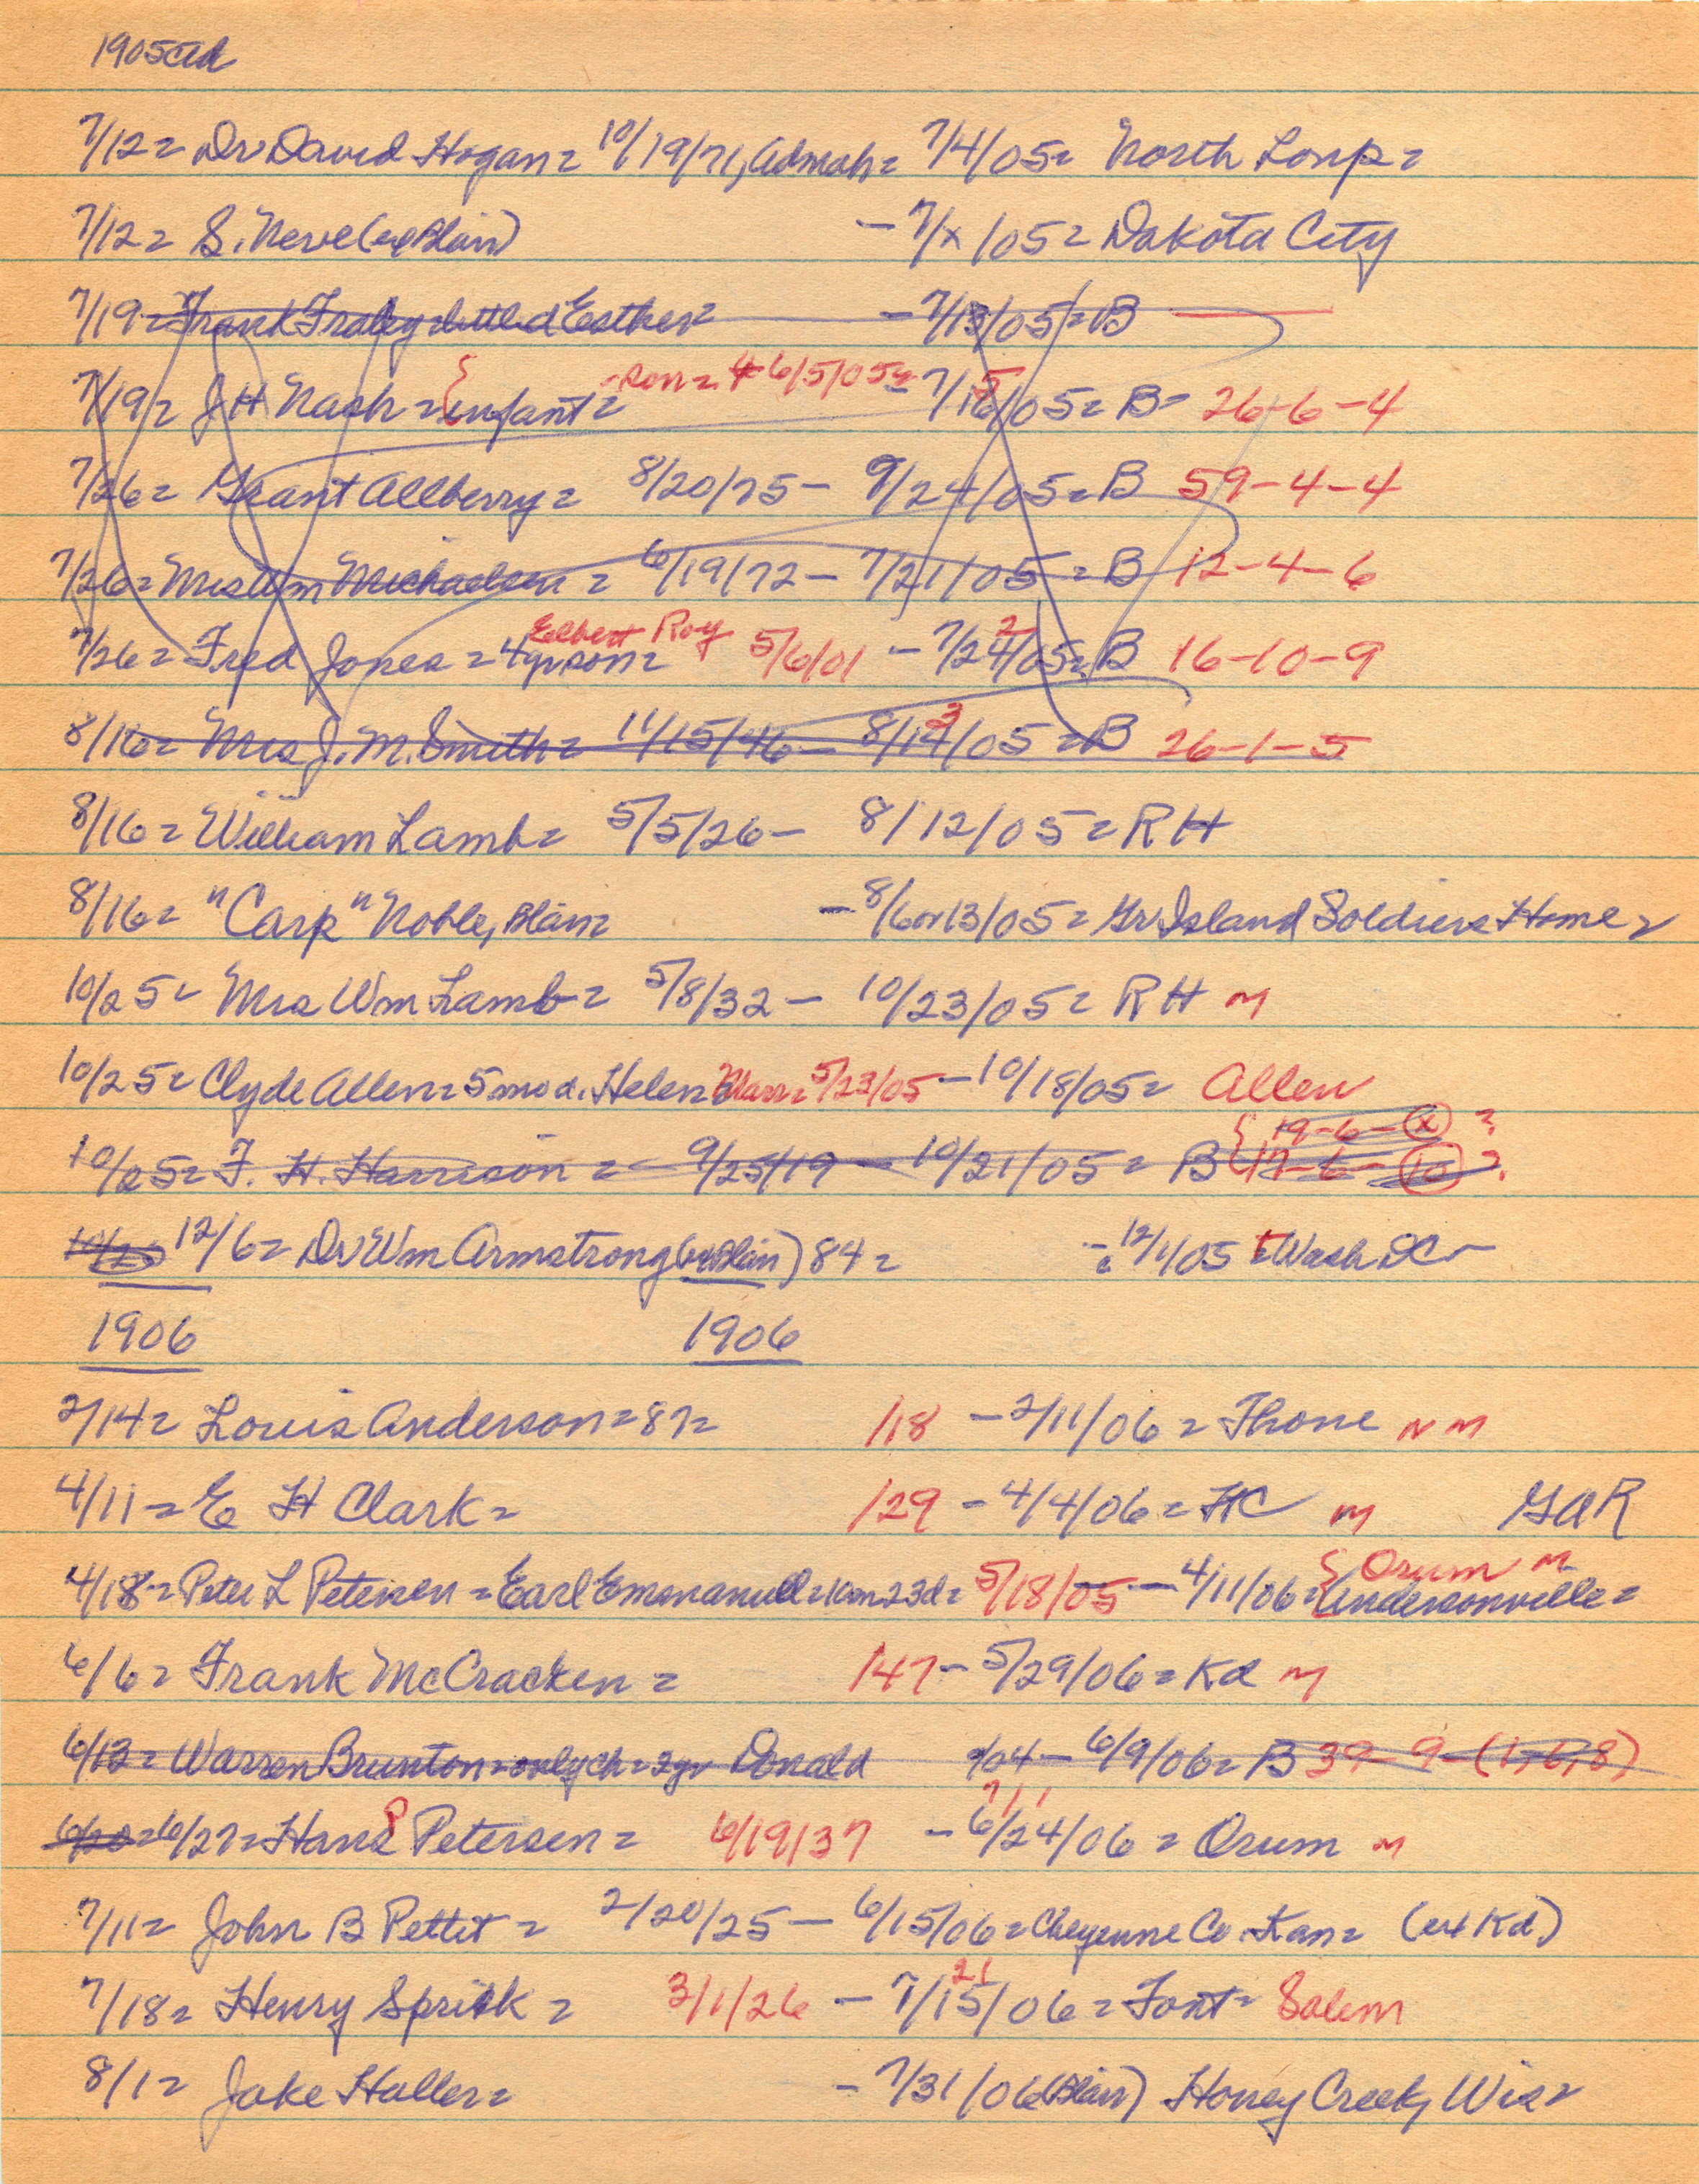 1905 ctd
7/12= Dr David Hogan= 10/19/71, Admah= 7/4/05= North Loup=
7/12= S. Neve (ex Blair) - 7/x/05= Dakota City
7/19= Frank Fraley= little d Esther= - 7/13/05= B
7/19= J H Nash = infant= son= 6/5/05= - 7/16/05= B= 26-6-4
7/26= Grant Allberry= 8/20/75- 9/24/05= B 59-4-4
7/26= Mrs Wm Michaelsen = 6/19/72- 7/21/05 = B 12-4-6
7/26= Fred Jones = 4yr son= Elbert Roy 5/6/01 - 7/24/05= B 16-10-9
8/16= Mrs J. M. Smith= 11/15/46- 8/14/05 = B 26-1-5
8/16= William Lamb= 5/5/26- 8/12/05= RH
8/16= "Carp" Noble, Blair= - 8/6 or 13/05= Gr Island Soldiers Home=
10/25= Mrs Wm Lamb= 5/8/32- 10/23/05= RH M
10/25= Clyde Allen= 5 mo d. Helen= 5/23/05 - 10/18/05= Allen
10/25= F. H. Harrison = 9/25/19 - 10/21/05= B { 19-6-(x) ? 17-6-(10) ?
10/25 12/6= Dr Wm Armstrong (ex Blair) 84= - 12/1/05 = Wash DC
1906 1906
2/14= Louis Anderson= 87= /18 - 2/11/06 = Thone N M
4/11= E H Clark= /29 - 4/4/06= HC M GAR
4/18= Peter L Petersen = Earl = 10m 23d= 5/18/05 - 4/11/06= { Orum M Andersonville=
6/6= Frank McCracken = /47- 5/29/06= Kd M
6/13= Warren Brunton= only ch= 2yr Donald /04- 6/9/06= B 39-9-(1,6,8)
6/20= 6/27= Hans P Petersen= 6/19/37 - 6/24/06= Orum M
7/11= John B Pettit = 2/20/25- 6/15/06= Cheyenne Co. Kan= (ex Kd)
7/18= Henry Sprick = 3/1/26 - 7/15/06= 21 Font= Salem
8/1= Jake Haller= - 7/31/06 (Blair) Honey Creek, Wis=